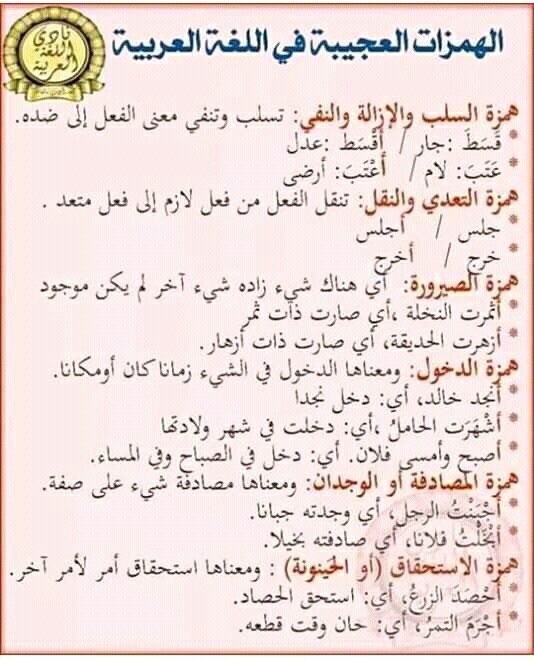 نادي
اللغة
العربية
الهمزات العجيبة في اللغة العربية
همزة السلب والإزالة والنفي: تسلب وتنفي معنى الفعل إلى ضده.
* قَسَطَ :جار / أَقْسَط :عدل
* عَتَبَ: لام / أَعْتَبَ: أرضى
همزة التعدي والنقل: تنقل الفعل من فعل لازم إلى فعل متعد .
* جلس / أجلس
* خرج / أخرج
همزة الصيرورة: أي هناك شيء زاده شيء آخر لم يكن موجود
* أثمرت النخلة ،أي صارت ذات ثمر
* أزهرت الحديقة، أي صارت ذات أزهار.
همزة الدخول: ومعناها الدخول في الشيء زمانا كان أومكانا.
* أنجد خالد، أي: دخل نجدا
* أَشْهَرَت الحاملُ ،أي: دخلت في شهر ولادتها
* أصبح وأمسى فلان. أي: دخل في الصباح وفي المساء.
همزة المصادفة أو الوجدان: ومعناها مصادفة شيء على صفة.
* أَجْبَنْتُ الرجل، أي وجدته جبانا.
* أَبْخَلْتُ فلانا، أي صادفته بخيلا.
همزة الاستحقاق (أو الحَينونة) : ومعناها استحقاق أمر لأمر آخر.
* أَحْصَدَ الزرعُ، أي: استحق الحصاد.
* أَجْرَمَ التمرُ، أي: حان وقت قطعه.